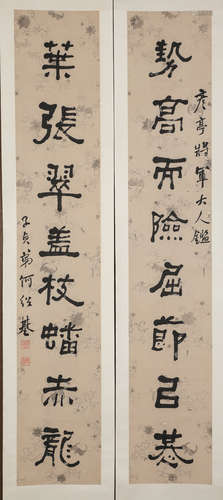 彥亭將軍大人鑑
勢高而險屈節己恭
葉張翠盖枝蟠赤龍
子貞弟何紹基